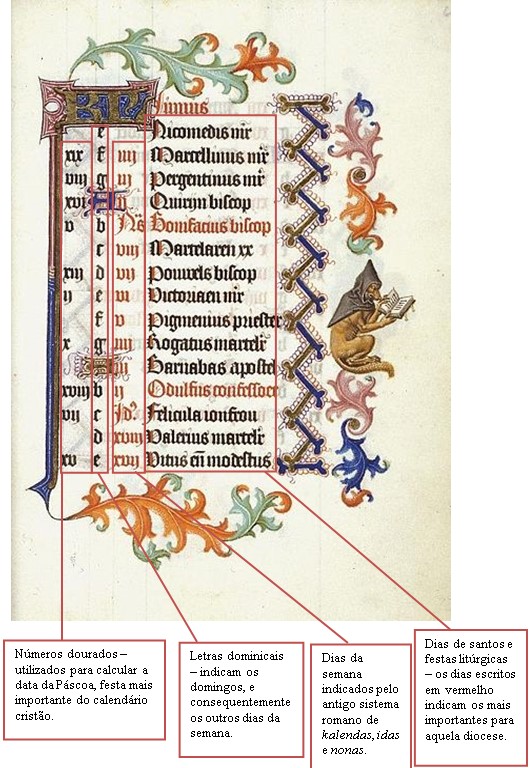 KL Iunius
e Nicomedis mr
xix f iiij Marcellinus mr
viij g iij Pergentinus mr
xvi A ij Quiryn biscop
v b Ns Bonifacius biscop
c viij Martelaren xx
xiij d vij Pouwels biscop
ij e vi Victoriaen mr
f v Pigmenius priester
x g iiij Rogatus martelr
iij Barnabas apostel
xviij b ij Odulfus confessoer
vij c Jds Felicula ioncfrou
d xviij Valerius martelr
xv e xvij Vitus en modestus
Números dourados –
utilizados para calcular a
data da Páscoa, festa mais
importante do calendário
cristão.
Letras dominicais
– indicam os
domingos, e
consequentemente
os outros dias da
semana.
Dias da
semana
indicados pelo
antigo sistema
romano de
kalendas, idas
e nonas.
Dias de santos e
festas litúrgicas
– os dias escritos
em vermelho
indicam os mais
importantes para
aquela diocese.